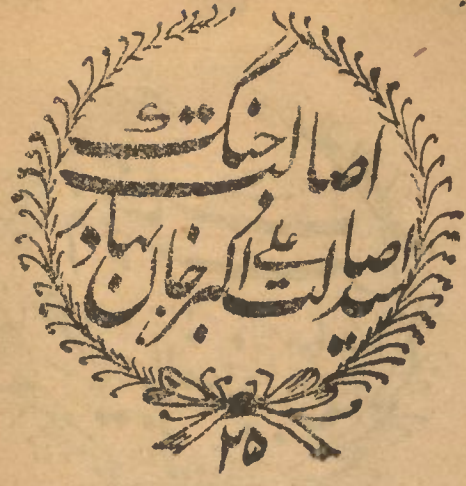 اصالت جنگ
سید اصالت علی اکبر خان بهادر
۳۵